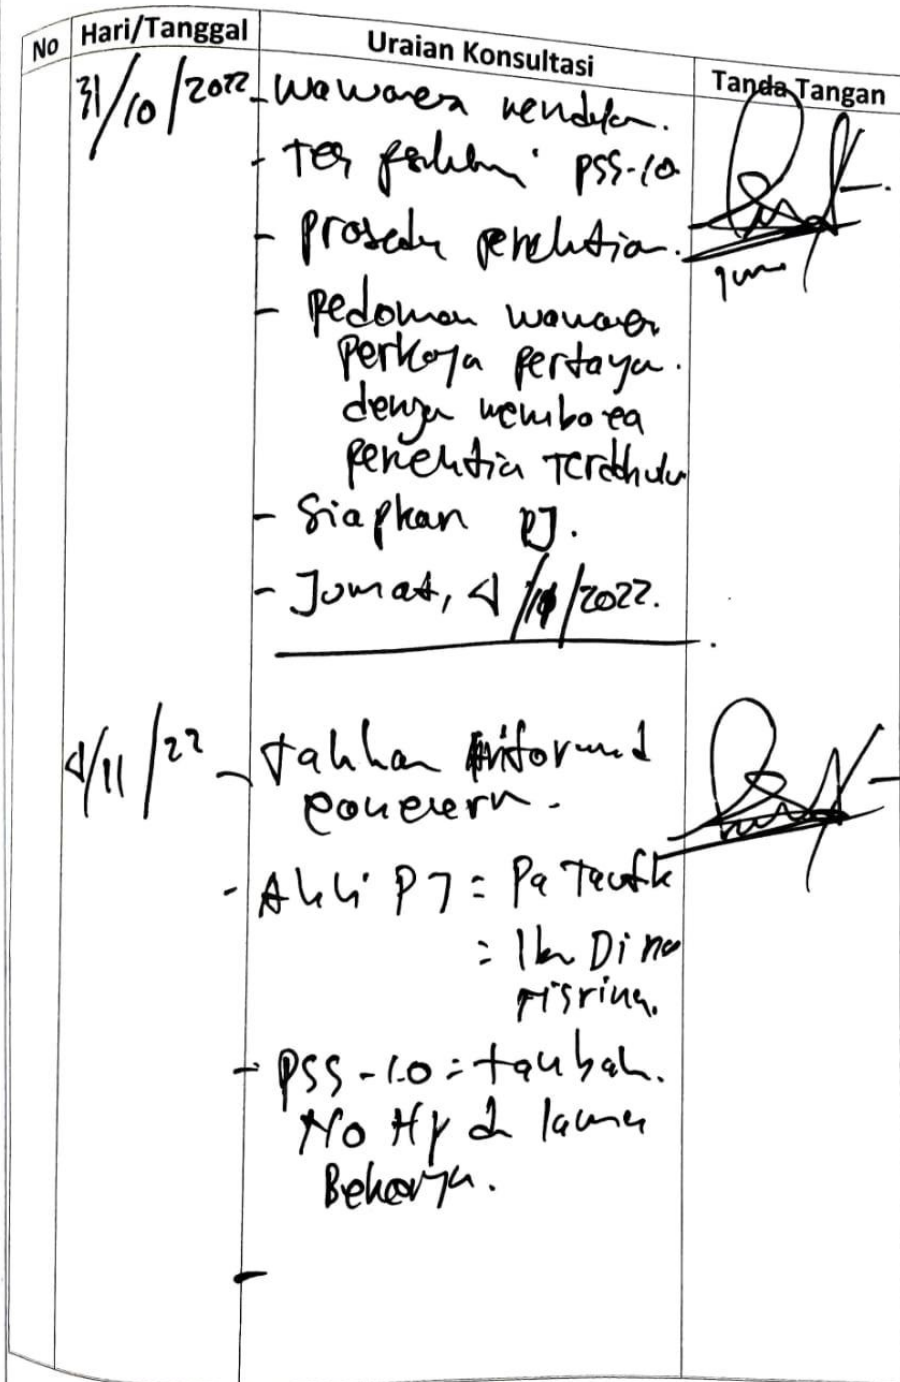 No Hari/Tanggal Uraian Konsultasi Tanda Tangan
31/10/2022 - wawancara mendalam.
- Tes psikologi PSS-10
- Prosedur penelitian.
- pedoman wawancara
perkaya pertanyaan.
dengan membaca
penelitian terdahulu
- Siapkan PJ.
- Jumat, 4/11/2022.
4/11/22 - tahkan informed
concern.
- Ahli PJ = Pa Taufik
= Ibu Dina
Fisrina.
- PSS-10 = tambah.
No Hp & lama
Bekerja.
-